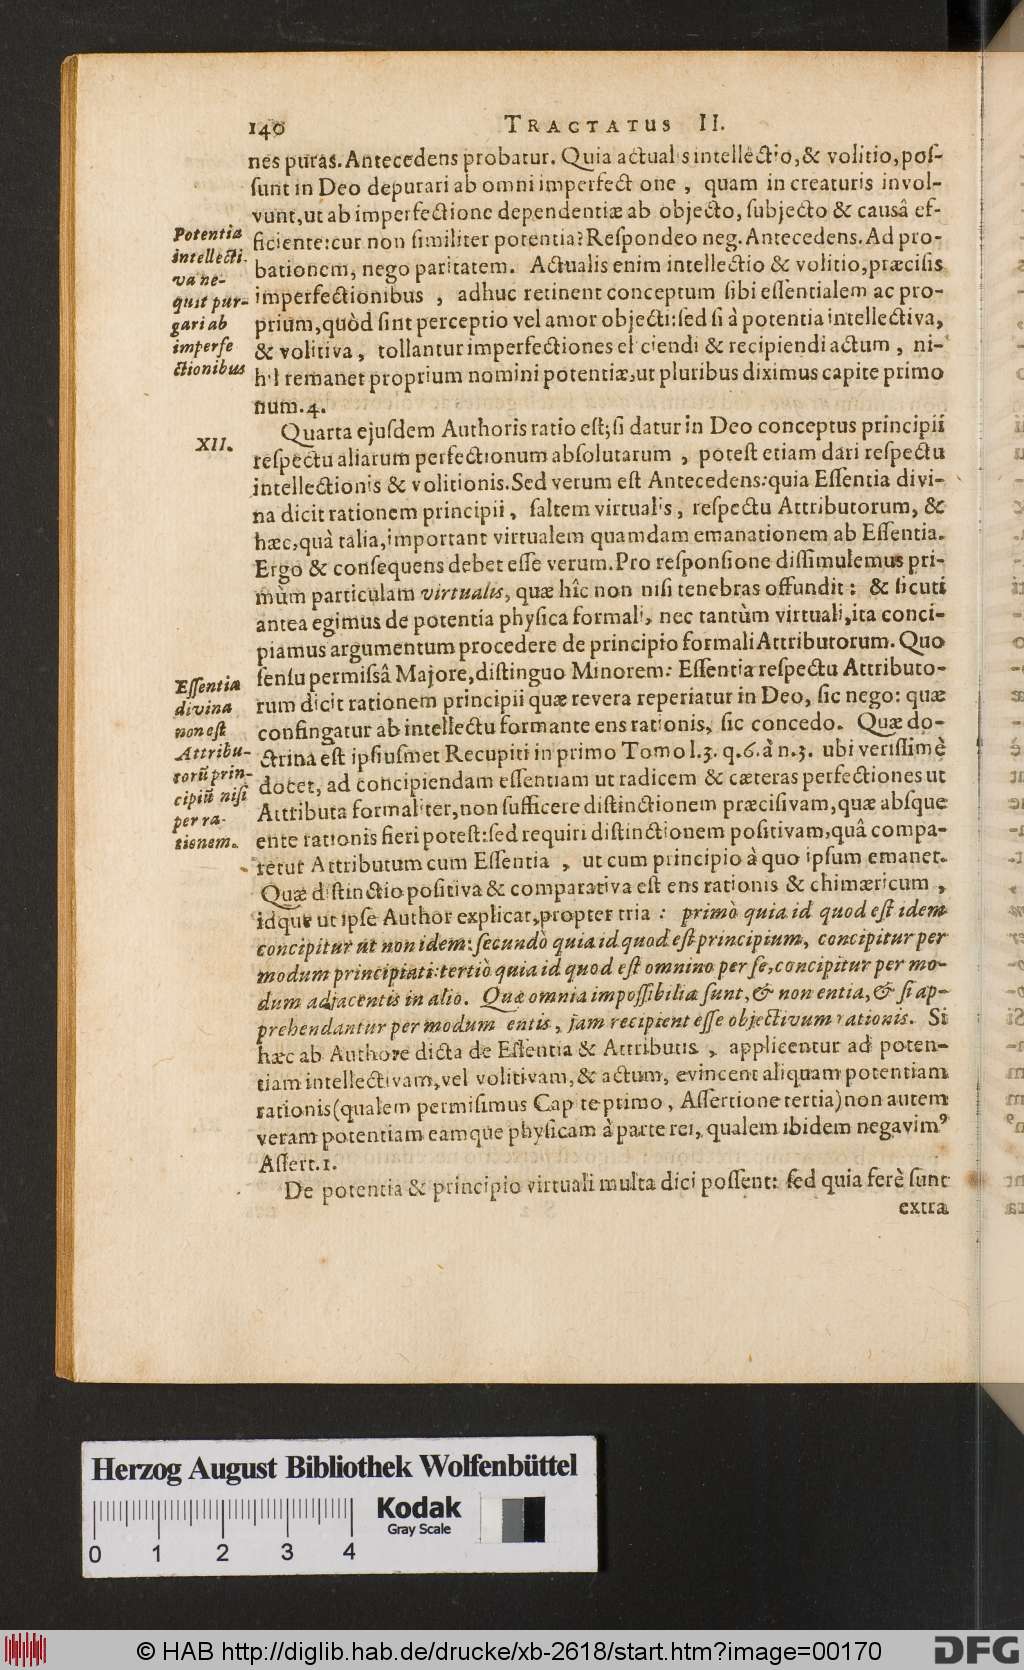 140 TRACTATUS II.
nes puras. Antecedens probatur. Quia actualis intellectio, & volitio, pos-
sunt in Deo depurari ab omni imperfectione, quam in creaturis invol-
vunt, ut ab imperfectione dependentiæ ab objecto, subjecto & causâ ef-
ficiente: cur non similiter potentia? Respondeo neg. Antecedens. Ad pro-
bationem, nego paritatem. Actualis enim intellectio & volitio, præcisis
imperfectionibus, adhuc retinent conceptum sibi essentialem ac pro-
prium, quòd sint perceptio vel amor objecti: sed si à potentia intellectiva,
& volitiva, tollantur imperfectiones eliciendi & recipiendi actum, ni-
hil remanet proprium nomini potentiæ, ut pluribus diximus capite primo
num. 4.
Potentia
intellecti-
va ne-
quit pur-
gari ab
imperfe
ctionibus
XII.
Quarta ejusdem Authoris ratio est; si datur in Deo conceptus principii
respectu aliarum perfectionum absolutarum, potest etiam dari respectu
intellectionis & volitionis. Sed verum est Antecedens: quia Essentia divi-
na dicit rationem principii, saltem virtualis, respectu Attributorum, &
hæc, quà talia, important virtualem quamdam emanationem ab Essentia.
Ergo & consequens debet esse verum. Pro responsione dissimulemus pri-
mùm particulam virtualis, quæ hîc non nisi tenebras offundit: & sicuti
antea egimus de potentia physica formali, nec tantùm virtuali, ita conci-
piamus argumentum procedere de principio formali Attributorum. Quo
sensu permissâ Majore, distinguo Minorem: Essentia respectu Attributo-
rum dicit rationem principii quæ revera reperiatur in Deo, sic nego: quæ
confingatur ab intellectu formante ens rationis, sic concedo. Quæ do-
ctrina est ipsiusmet Recupiti in primo Tomo l. 3. q. 6. à n. 3. ubi verissimè
docet, ad concipiendam essentiam ut radicem & cæteras perfectiones ut
Attributa formaliter, non sufficere distinctionem præcisivam, quæ absque
ente rationis fieri potest: sed requiri distinctionem positivam, quâ compa-
retur Attributum cum Essentia, ut cum principio à quo ipsum emanet.
Quæ distinctio positiva & comparativa est ens rationis & chimæricum,
idque ut ipse Author explicat, propter tria: primò quia id quod est idem
concipitur ut non idem: secundò quia id quod est principium, concipitur per
modum principiati: tertiò quia id quod est omnino per se, concipitur per mo-
dum adjacentis in alio. Quæ omnia impossibilia sunt, & non entia, & si ap-
prehendantur per modum entis, jam recipient esse objectivum rationis. Si
hæc ab Authore dicta de Essentia & Attributis, applicentur ad poten-
tiam intellectivam, vel volitivam, & actum, evincent aliquam potentiam
rationis (qualem permisimus Capite primo, Assertione tertia) non autem
veram potentiam eamque physicam à parte rei, qualem ibidem negavimꝰ
Assert. 1.
Essentia
divina
non est
Attribu-
torũ prin-
cipiũ nisi
per ra-
tionem.
De potentia & principio virtuali multa dici possent: sed quia ferè sunt
extra
Herzog August Bibliothek Wolfenbüttel
Kodak
Gray Scale
0 1 2 3 4
© HAB http://diglib.hab.de/drucke/xb-2618/start.htm?image=00170
DFG